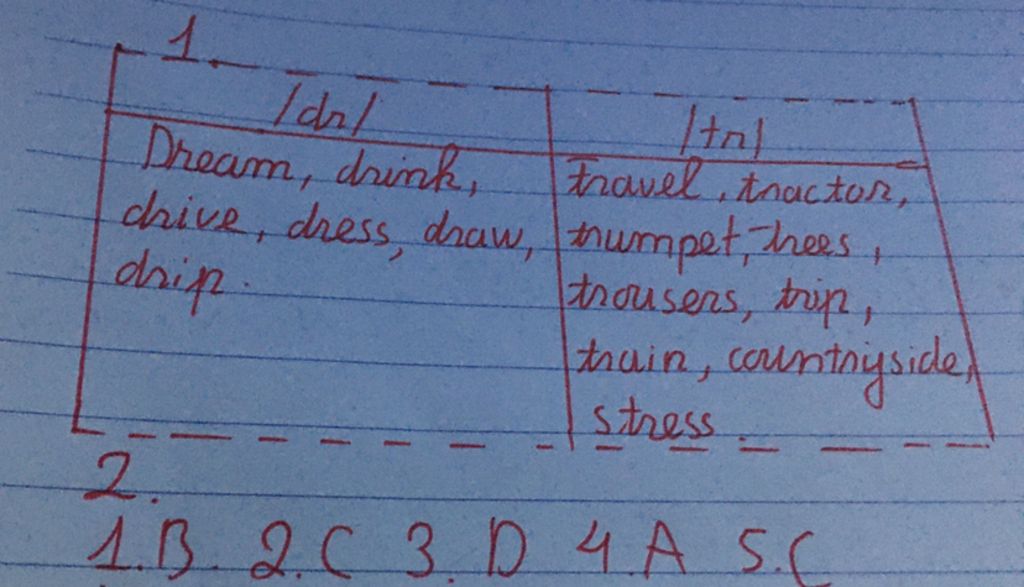 1.
/dr/ /tr/
Dream, drink, travel, tractor,
drive, dress, draw, trumpet, trees,
drip. trousers, trip,
train, countryside,
stress.
2.
1.B. 2.C 3.D 4.A 5.C